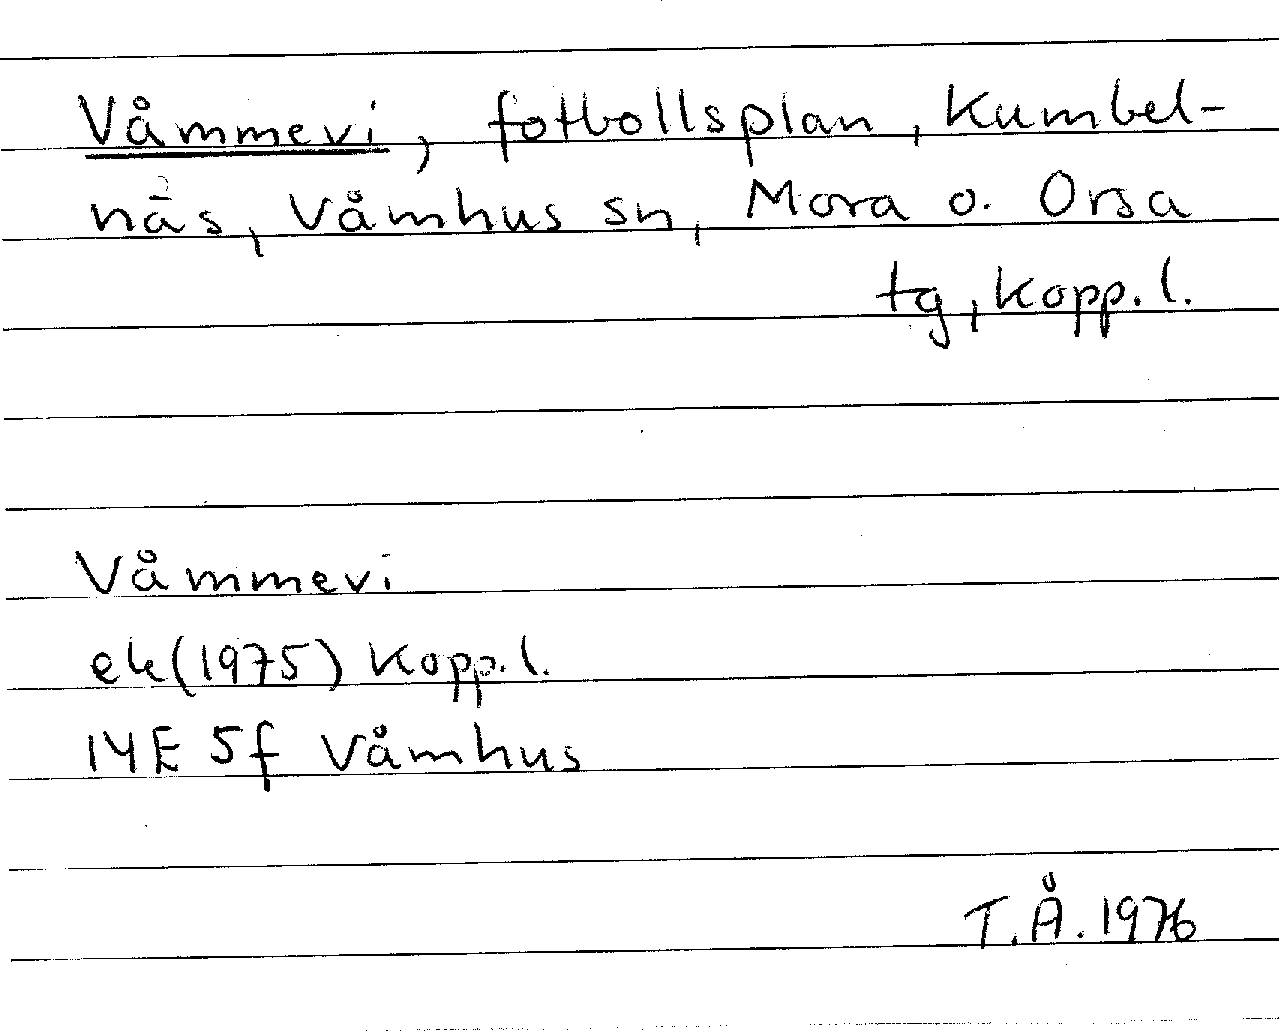 Våmmevi, fotbollsplan, Kumbel-
näs, Våmhus sn, Mora o. Orsa
tg, Kopp. l.
Våmmevi
ek (1975) Kopp. l.
14E 5f Våmhus
T.Å. 1976